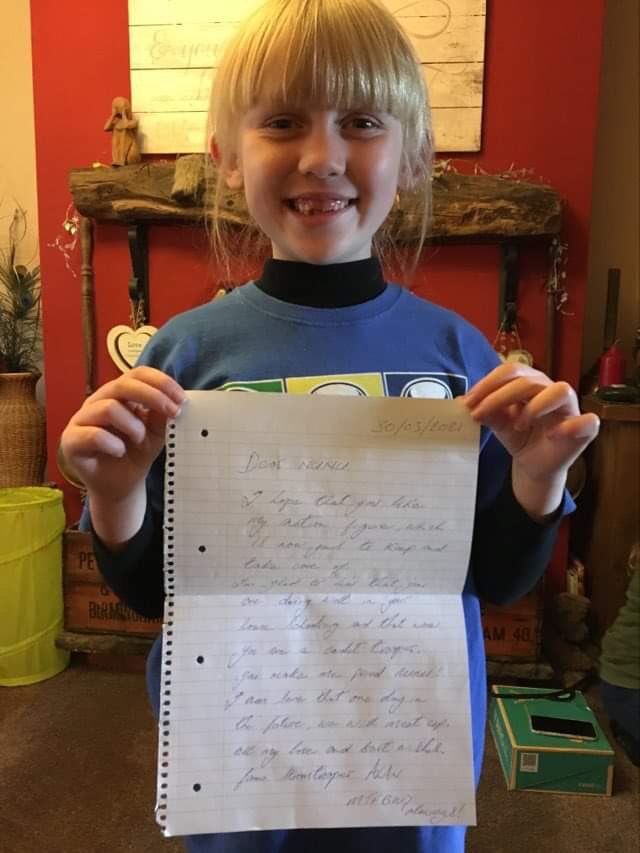 Enjoy
Love
30/03/2021
Dear
I hope that you like
my action figure, which
is now yours to keep and
take care of.
I'm glad to hear that you
are doing well in your
home schooling and that now
you are a cadet trooper.
you make me proud
I am sure that one day in
the future, we will meet up.
all my love and best wishes
from Stormtrooper
always!!
PE
&
BIRMINGHAM
AM 40.